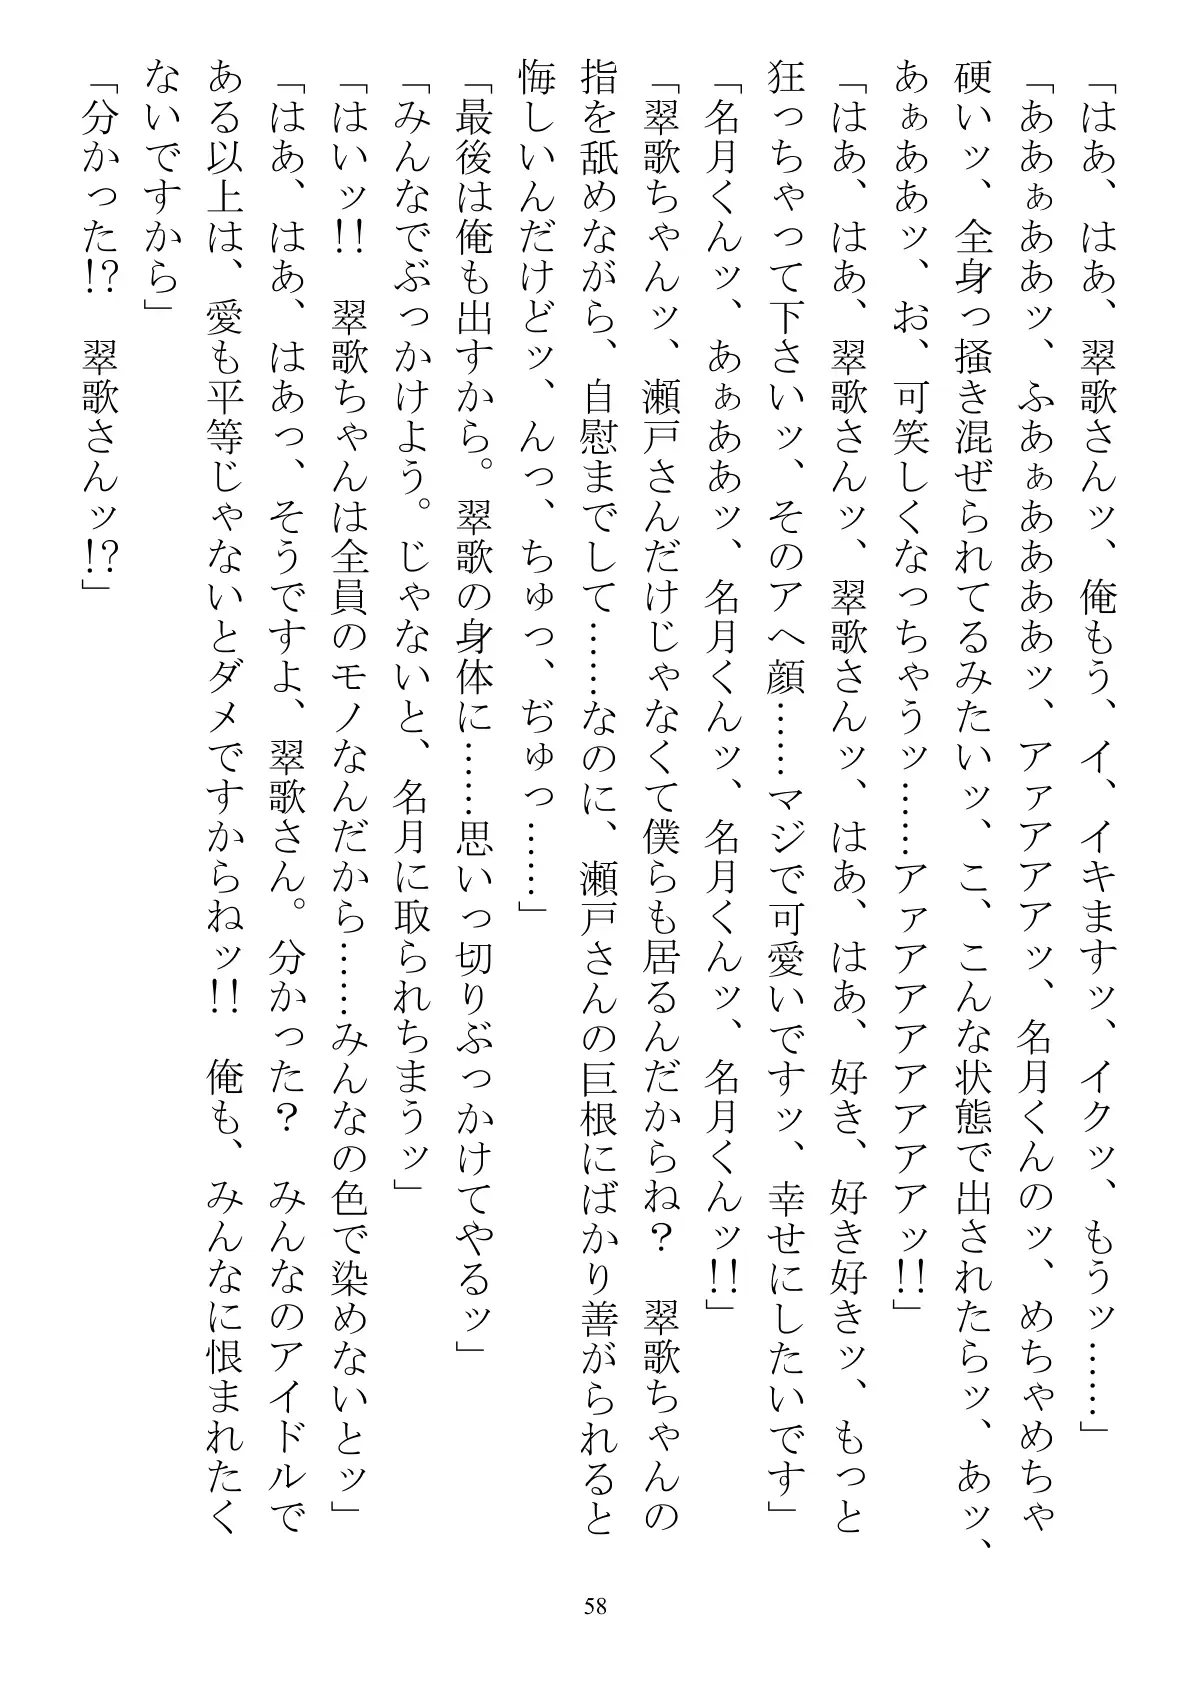 「はあ、はあ、翠歌さんッ、俺もう、イ、イキますッ、イクッ、もうッ……」
「ああぁああッ、ふあぁああああッ、アァアアアッ、名月くんのッ、めちゃめちゃ
硬いッ、全身っ掻き混ぜられてるみたいッ、こ、こんな状態で出されたらッ、あッ、
あぁああッ、お、可笑しくなっちゃうッ……アァアアアアアアアッ!!」
「はあ、はあ、翠歌さんッ、翠歌さんッ、はあ、はあ、好き、好き好きッ、もっと
狂っちゃって下さいッ、そのアヘ顔……マジで可愛いですッ、幸せにしたいです」
「名月くんッ、あぁああッ、名月くんッ、名月くんッ、名月くんッ!!」
「翠歌ちゃんッ、瀬戸さんだけじゃなくて僕らも居るんだからね？　翠歌ちゃんの
指を舐めながら、自慰までして……なのに、瀬戸さんの巨根にばかり善がられると
悔しいんだけどッ、んっ、ちゅっ、ぢゅっ……」
「最後は俺も出すから。翠歌の身体に……思いっ切りぶっかけてやるッ」
「みんなでぶっかけよう。じゃないと、名月に取られちまうッ」
「はいッ!!　翠歌ちゃんは全員のモノなんだから……みんなの色で染めないとッ」
「はあ、はあ、はあっ、そうですよ、翠歌さん。分かった？　みんなのアイドルで
ある以上は、愛も平等じゃないとダメですからねッ!!　俺も、みんなに恨まれたく
ないですから」
「分かった!?　翠歌さんッ!?」
58